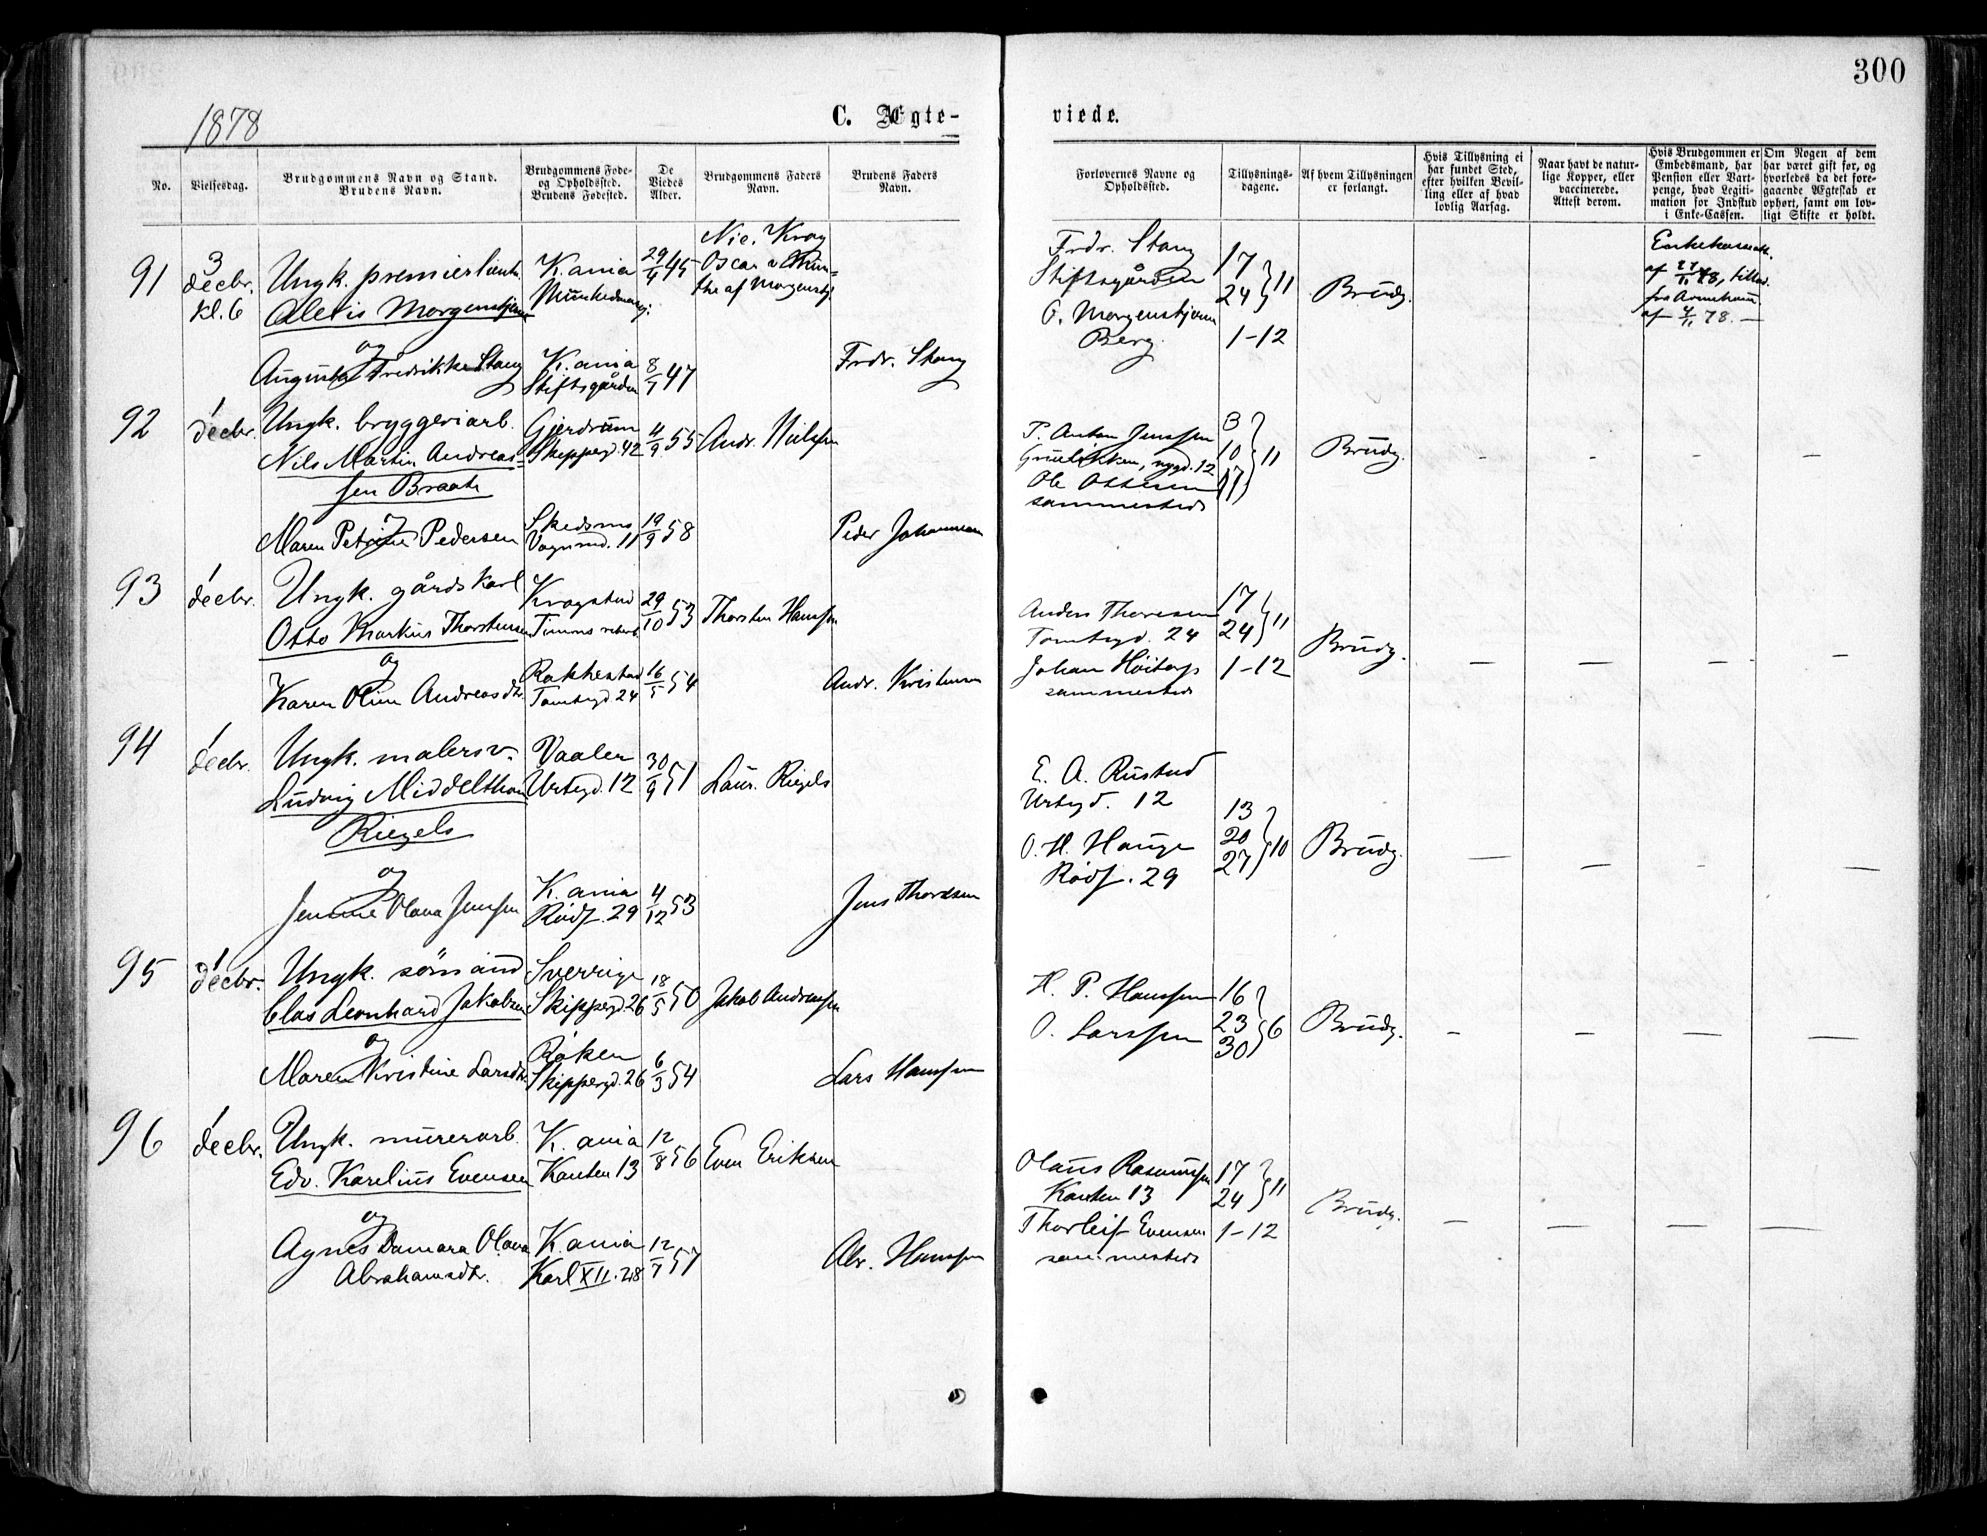 300
1878
C. Ægte-
viede.
No.
Vielsesdag.
Brudgommens Navn og Stand.
Brudens Navn.
Brudgommens Føde-
og Opholdssted.
Brudens Fødested.
De
Viedes
Alder.
Brudgommens Faders
Navn.
Brudens Faders
Navn.
Forlovernes Navne og
Opholdssted.
Tillysnings-
dagene.
Af hvem Tillysningen
er forlangt.
Hvis Tillysning ei
har fundet Sted,
efter hvilken Bevil-
ling eller af hvad
lovlig Aarsag.
Naar havt de natur-
lige Kopper, eller
vaccinerede.
Attest derom.
Hvis Brudgommen er
Embedsmand, har
Pension eller Vart-
penge, hvad Legiti-
mation for Indskud
i Enke-Cassen.
Om Nogen af dem
har været gift før, og
hvorledes da det fore-
gaaende Ægteskab er
ophørt, samt om lov-
ligt Skifte er holdt.
91
3
decbr.
kl. 6
Ungk. premierlieut.
Alexis Morgenstjerne
og
Augusta Fredrikke Stang
K.ania
K.ania
Stiftsgården
29/9 45
8/1 47
Nic. Krag
Oscar
af Morgenstj.
Frdr. Stang
Frdr. Stang
Stiftsgården
O. Morgenstjerne
Berg.
17
24 } 11
1-12
Brudg.
af 27/11 78,
af 4/11 78. —
92
1
decbr.
Ungk. bryggeriarb.
Nils Martin Andreas-
sen Braate
og
Maren Petrine Pedersen
Gjerdrum
Skipperg. 42
Skedsmo
Vognmd. 11
4/9 55
19/9 58
Andr. Nielssen
Peder Johannesen
P. Anton Jenssen
Grueløkken, nygd. 12
Ole Ottesen
sammesteds
3
10
17 } 11
Brudg.
93
1
decbr.
Ungk. gårdskarl
Otto Markus Thorstensen
og
Karen Oline Andreasdtr.
Kragstad
Rakkestad
Tomtegd. 24
29/10 53
16/5 54
Thorsten Hanssen
Andr. Kristensen
Anders Thoresen
Tomtegd. 24
Johan Høitorp
sammesteds
17
24 } 11
1-12
Brudg.
94
1
decbr.
Ungk. malersv.
Ludvig Middelthon
Riegels
og
Jensine Olava Jenssen
Vaaler
Urtegd. 12
K.ania
Rødf. 29
30/9 51
4/12 53
Laur. Riegels
Jens Thordsen
E. A. Rustad
Urtegd. 12
O. H. Hauge
Rødf. 29
13
20
27 } 10
Brudg.
95
1
decbr.
Ungk. sømand
Clas Leonhard Jakobsen
og
Maren Kristine Larsdtr.
Sverrige
Skippergd. 26
Røken
Skippergd. 26
18/5 50
6/3 54
Jakob Andreassen
Lars Hanssen
H. P. Hanssen
O. Larssen
16
23
30 } 6
Brudg.
96
1
decbr.
Ungk. murerarb.
Edv. Karelius Evensen
og
Agnes Damara Olava
Abrahamsdtr.
K.ania
Kanten 13
K.ania
Karl XII. 28
12/8 56
12/1 57
Even Eriksen
Abr. Hanssen
Olaus Rasmussen
Kanten 13
Thorleif Evensen
sammesteds
17
24 } 11
1-12
Brudg.